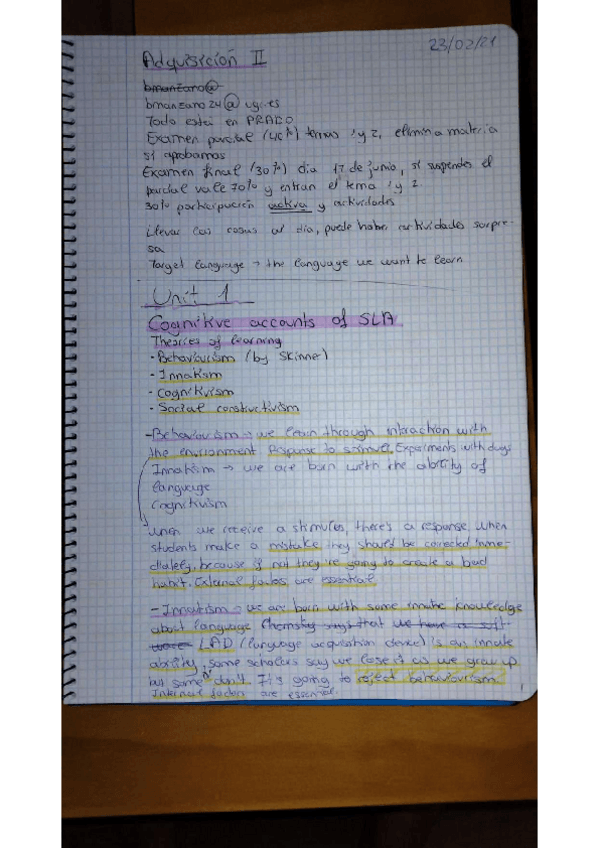 Adquisición II
23/02/21
bmanzano@
bmanzano24@ugr.es
Todo está en PRADO
Examen parcial (40%) temas 1 y 2, elimina materia
si aprobamos
Examen final (30%) día 17 de junio, si suspendes el
parcial vale 70% y entran el tema 1 y 2
30% participación activa y actividades
Llevar las cosas al día, puede haber actividades sorpre-
sa
Target language → the language we want to learn
Unit 1
Cognitive accounts of SLA
Theories of learning
- Behaviourism (by Skinner)
- Innatism
- Cognitivism
- Social constructivism
- Behaviourism → we learn through interaction with
the environment Response to stimuli. Experiments with dogs
Innatism → we are born with the ability of
language
Cognitivism
When we receive a stimulus, there's a response, when
students make a mistake they should be corrected inme-
diately, because if not they're going to create a bad
habit. External factors are essential
- Innatism → we are born with some innate knowledge
about language Chomsky says that we have a soft
ware LAD (language acquisition device) is an innate
ability, some scholars say we lose it as we grow up
but some don't. It is going to reject behaviourism
Internal factors are essential.